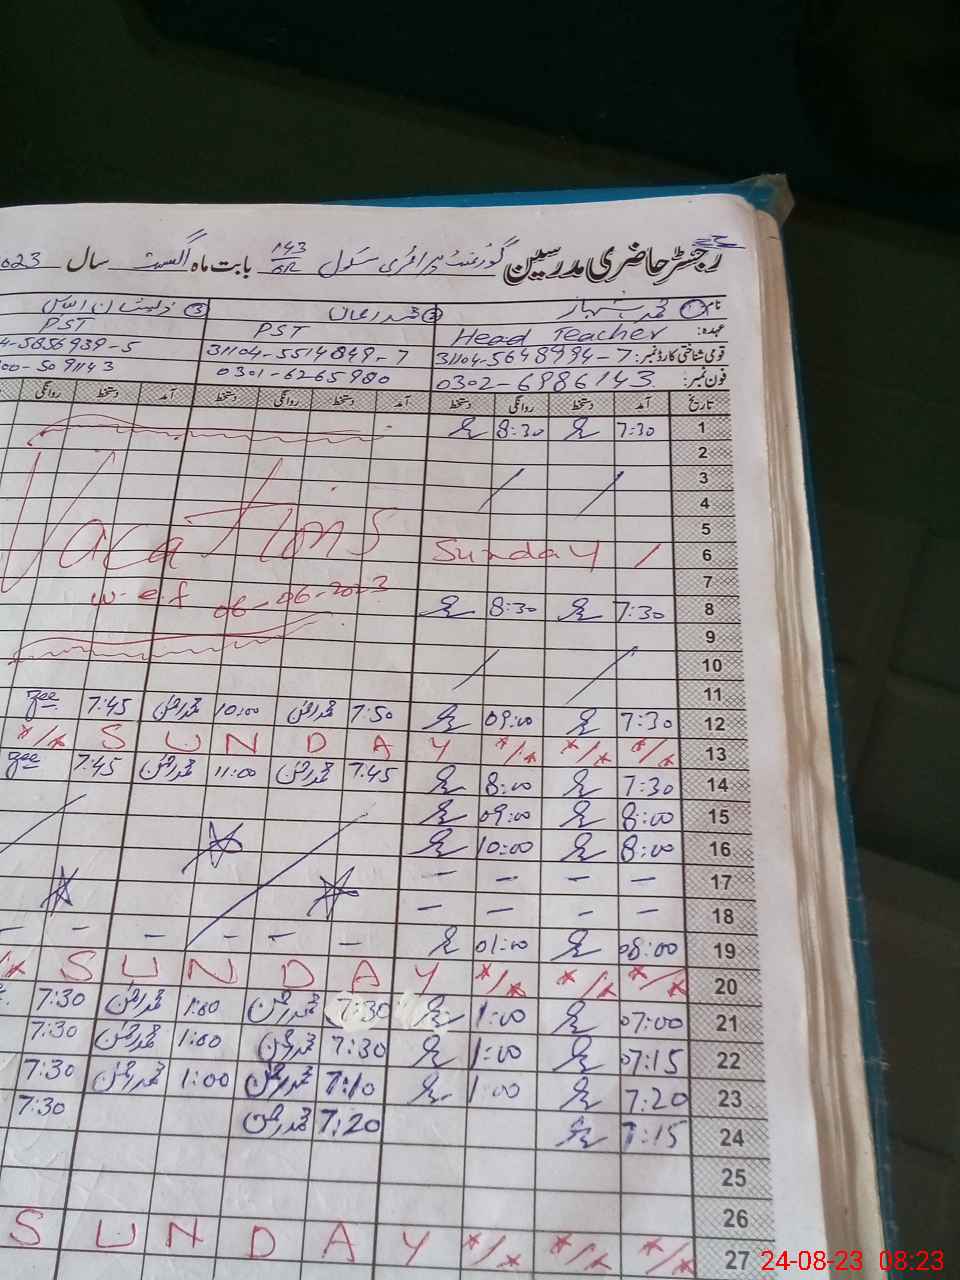 رجسٹر حاضری مدرسین گورنمنٹ پرائمری سکول 143/6R بابت ماہ اگست سال 2023
نام ① محمد شہباز ② ③
عہدہ: Head Teacher PST PST
قومی شناختی کارڈ نمبر: 31104-5648994-7 31104-5514849-7 4-5856939-5
فون نمبر: 0302-6986143 0301-6265980 00-5091143
تاریخ آمد دستخط روانگی دستخط آمد دستخط روانگی دستخط آمد دستخط روانگی
1 7:30 8:30
2
3
4
5
6 Sunday
Vacations
7
w.e.f 06-06-2023
8 7:30 8:30
9
10
11
12 7:30 09:00 7:50 10:00 7:45
13 SUNDAY
14 7:30 8:00 7:45 11:00 7:45
15 8:00 09:00
16 8:00 10:00
17 – – – –
18 – – – –
19 08:00 01:00 – – – – –
20 SUNDAY
21 07:00 1:00 7:30 1:00 7:30
22 07:15 1:00 7:30 1:00 7:30
23 7:20 1:00 7:10 1:00 7:30
24 7:15 7:20 7:30
25
26
27 SUNDAY
24-08-23 08:23